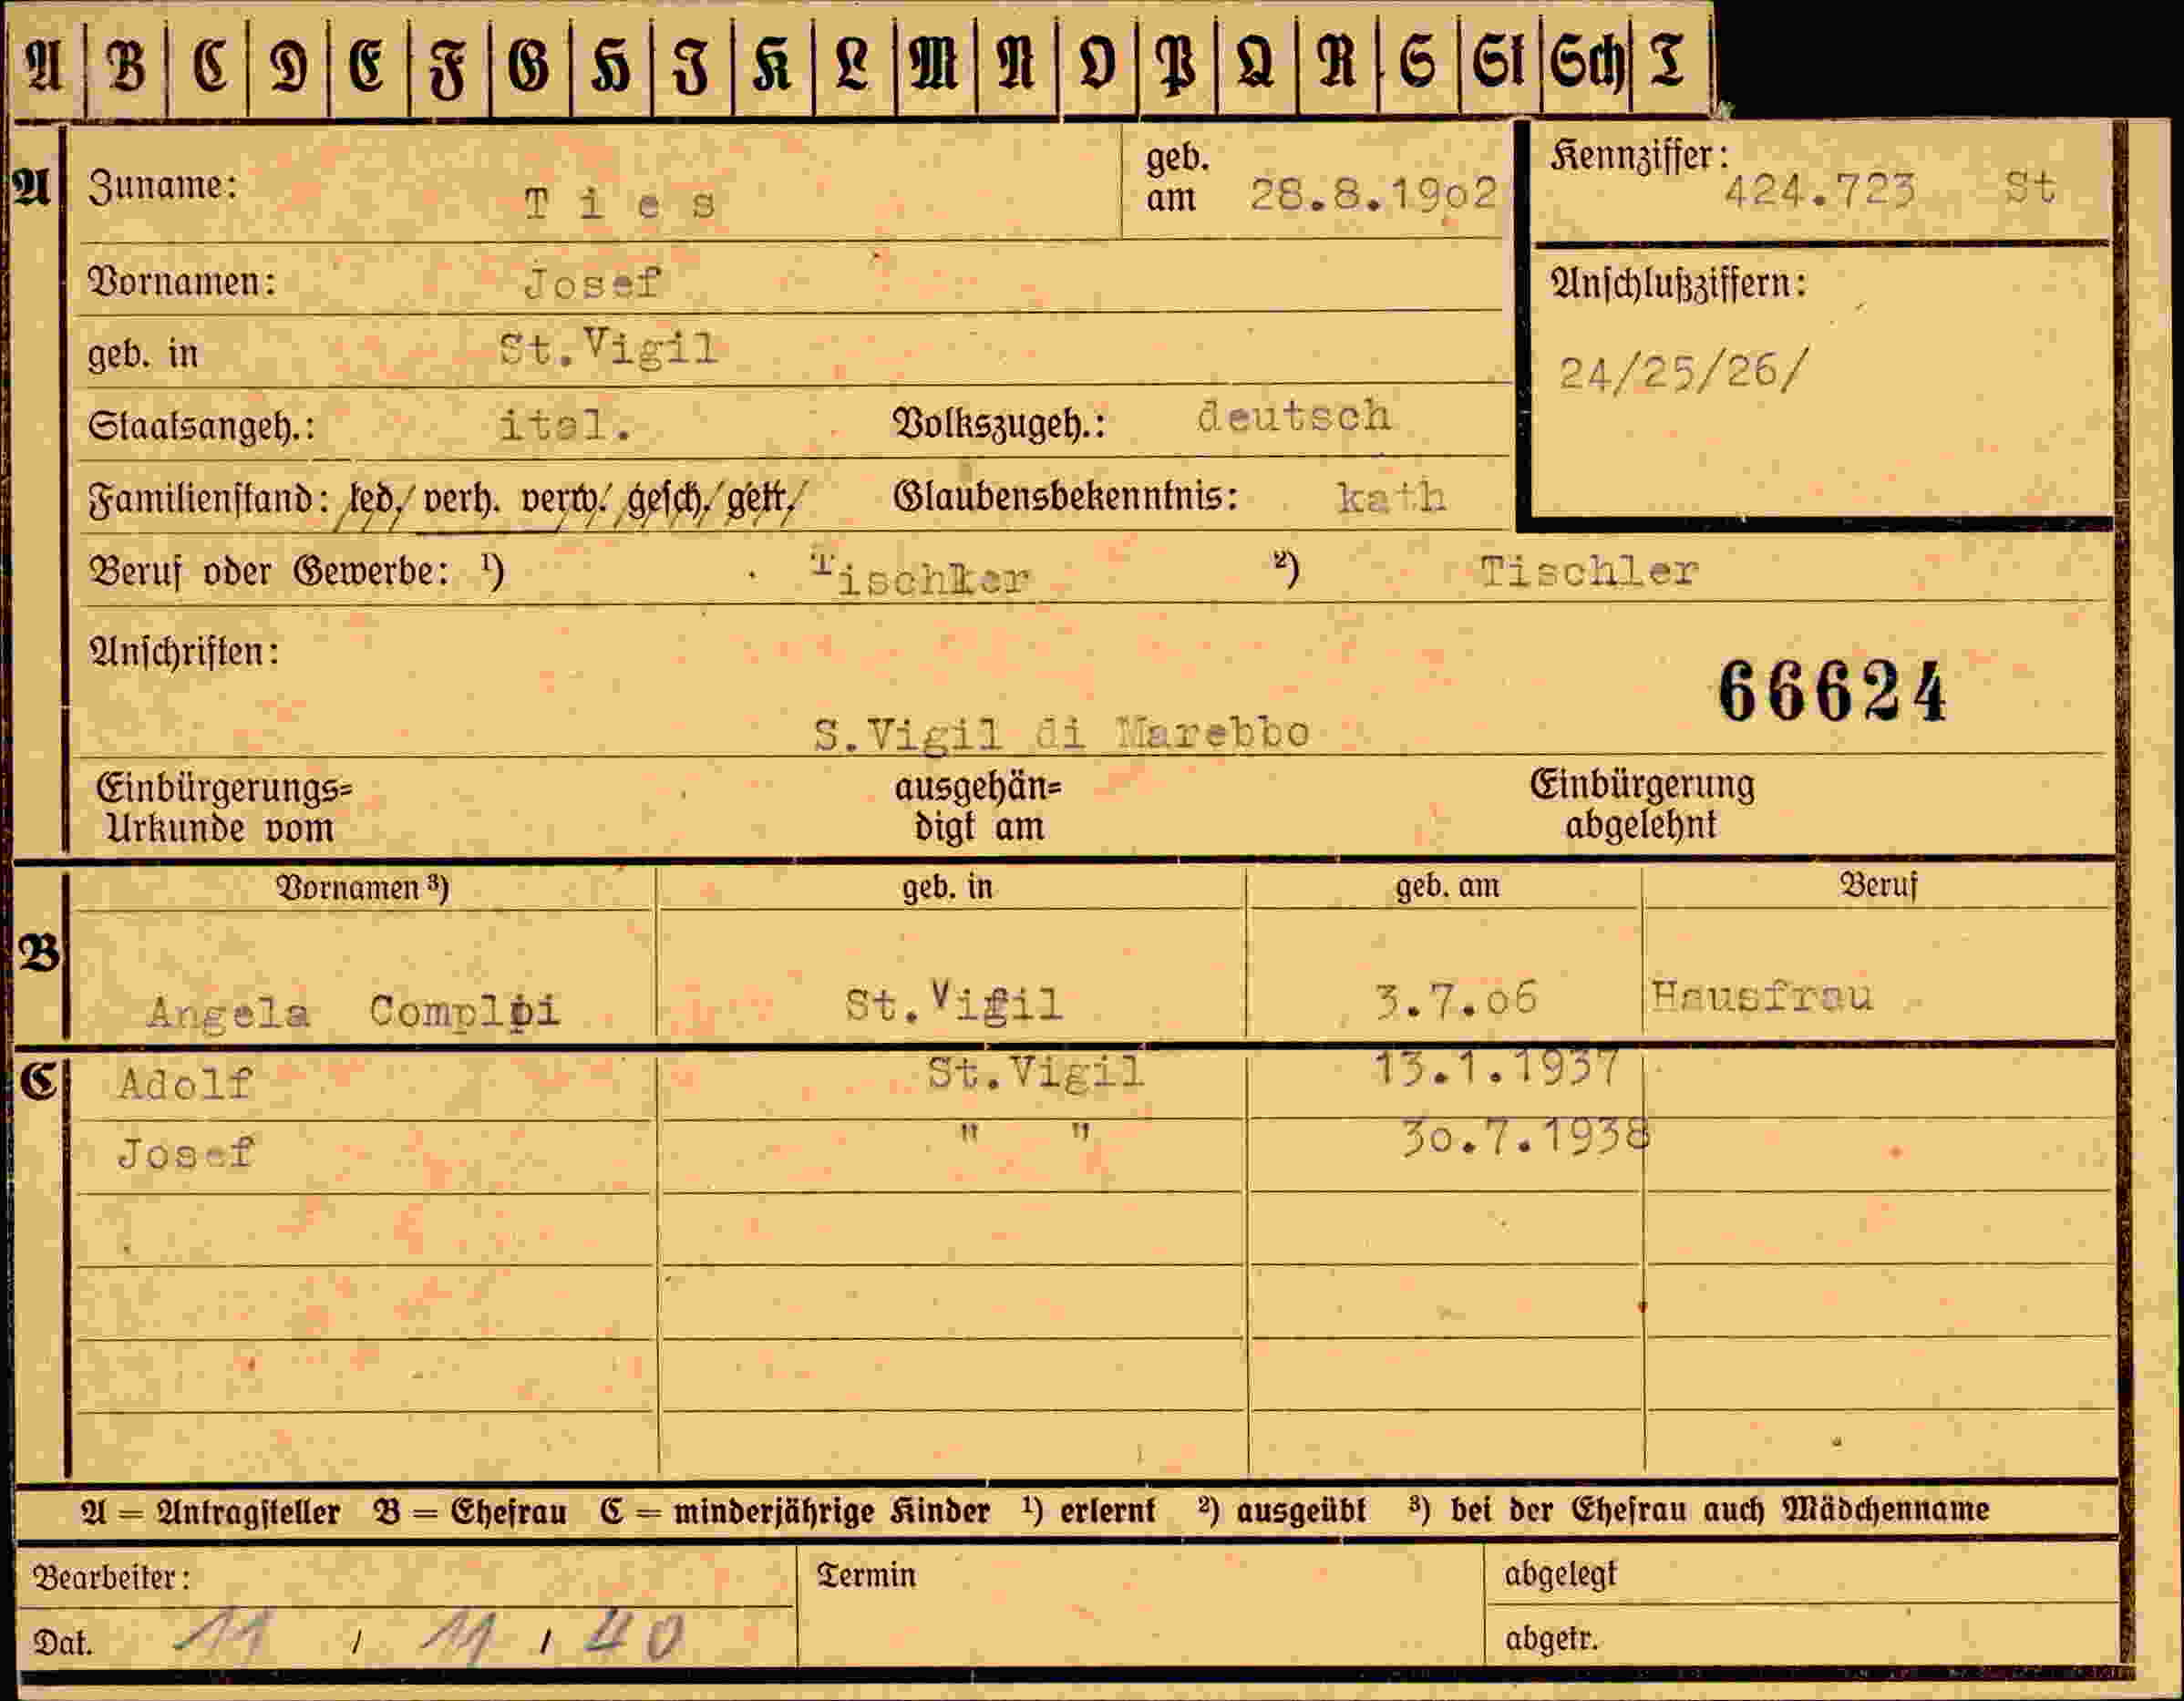 A B C D E F G H J K L M N O P Q R S St Sch T
A Zuname: Ties geb. am 28.8.19o2 Kennziffer: 424.723 St
Vornamen: Josef Anschlußziffern:
geb. in St.Vigil 24/25/26/
Staatsangeh.: ital. Volkszugeh.: deutsch
Familienstand: led./ verh. verw./ gesch./ gett./ Glaubensbekenntnis: kath
Beruf oder Gewerbe: ¹) Tischker ²) Tischler
Anschriften: 66624
S.Vigil di Marebbo
Einbürgerungs= ausgehän= Einbürgerung
Urkunde vom digt am abgelehnt
Vornamen ³) geb. in geb. am Beruf
B Angela St.Vigil 3.7.o6 Hausfrau
C Adolf St.Vigil 13.1.1937
Josef " " 3o.7.1938
A = Antragsteller B = Ehefrau C = minderjährige Kinder ¹) erlernt ²) ausgeübt ³) bei der Ehefrau auch Mädchenname
Bearbeiter: Termin abgelegt
Dat. 11 / 11 / 40 abgetr.